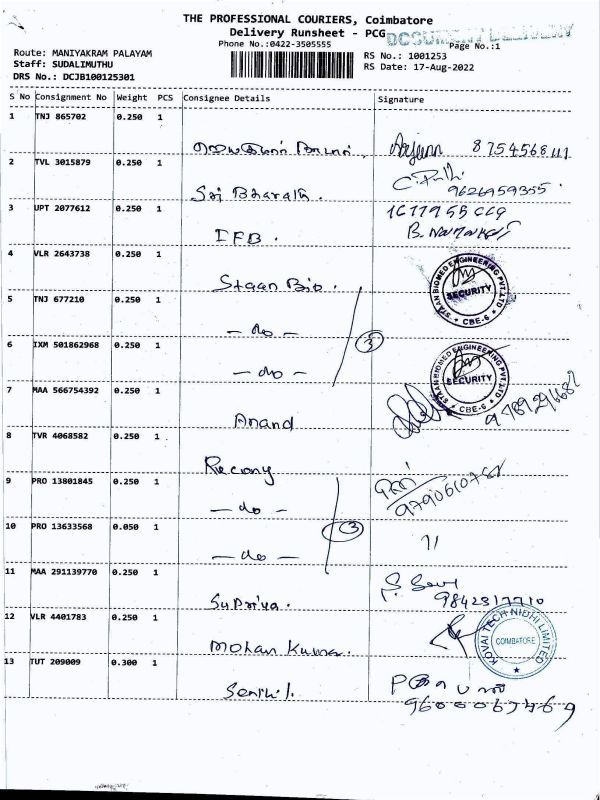 THE PROFESSIONAL COURIERS, Coimbatore
Delivery Runsheet - PCG
DOCUMENT DELIVERY
Phone No.:0422-3505555
Page No.:1
Route: MANIYAKRAM PALAYAM
RS No.: 1001253
Staff: SUDALIMUTHU
RS Date: 17-Aug-2022
DRS No.: DCJB100125301
S No Consignment No Weight PCS Consignee Details Signature
1 TNJ 865702 0.250 1
2 TVL 3015879 0.250 1 Sri Bharath.
9626959355
3 UPT 2077612 0.250 1 IFB.
4 VLR 2643738 0.250 1 Staan Bio.
STAAN BIOMED ENGINEERING PVT.LTD SECURITY CBE-6
5 TNJ 677210 0.250 1 -do-
3
6 IXM 501862968 0.250 1 -do-
STAAN BIOMED ENGINEERING PVT.LTD SECURITY CBE-6
7 MAA 566754392 0.250 1 Anand
8 TVR 4068582 0.250 1
9 PRO 13801845 0.250 1 -do-
10 PRO 13633568 0.050 1 -do-
3
11
11 MAA 291139770 0.250 1 Supriya.
12 VLR 4401783 0.250 1 Mohan Kumar.
KOVAI TECH NIDHI LIMITED COIMBATORE
13 TUT 209009 0.300 1